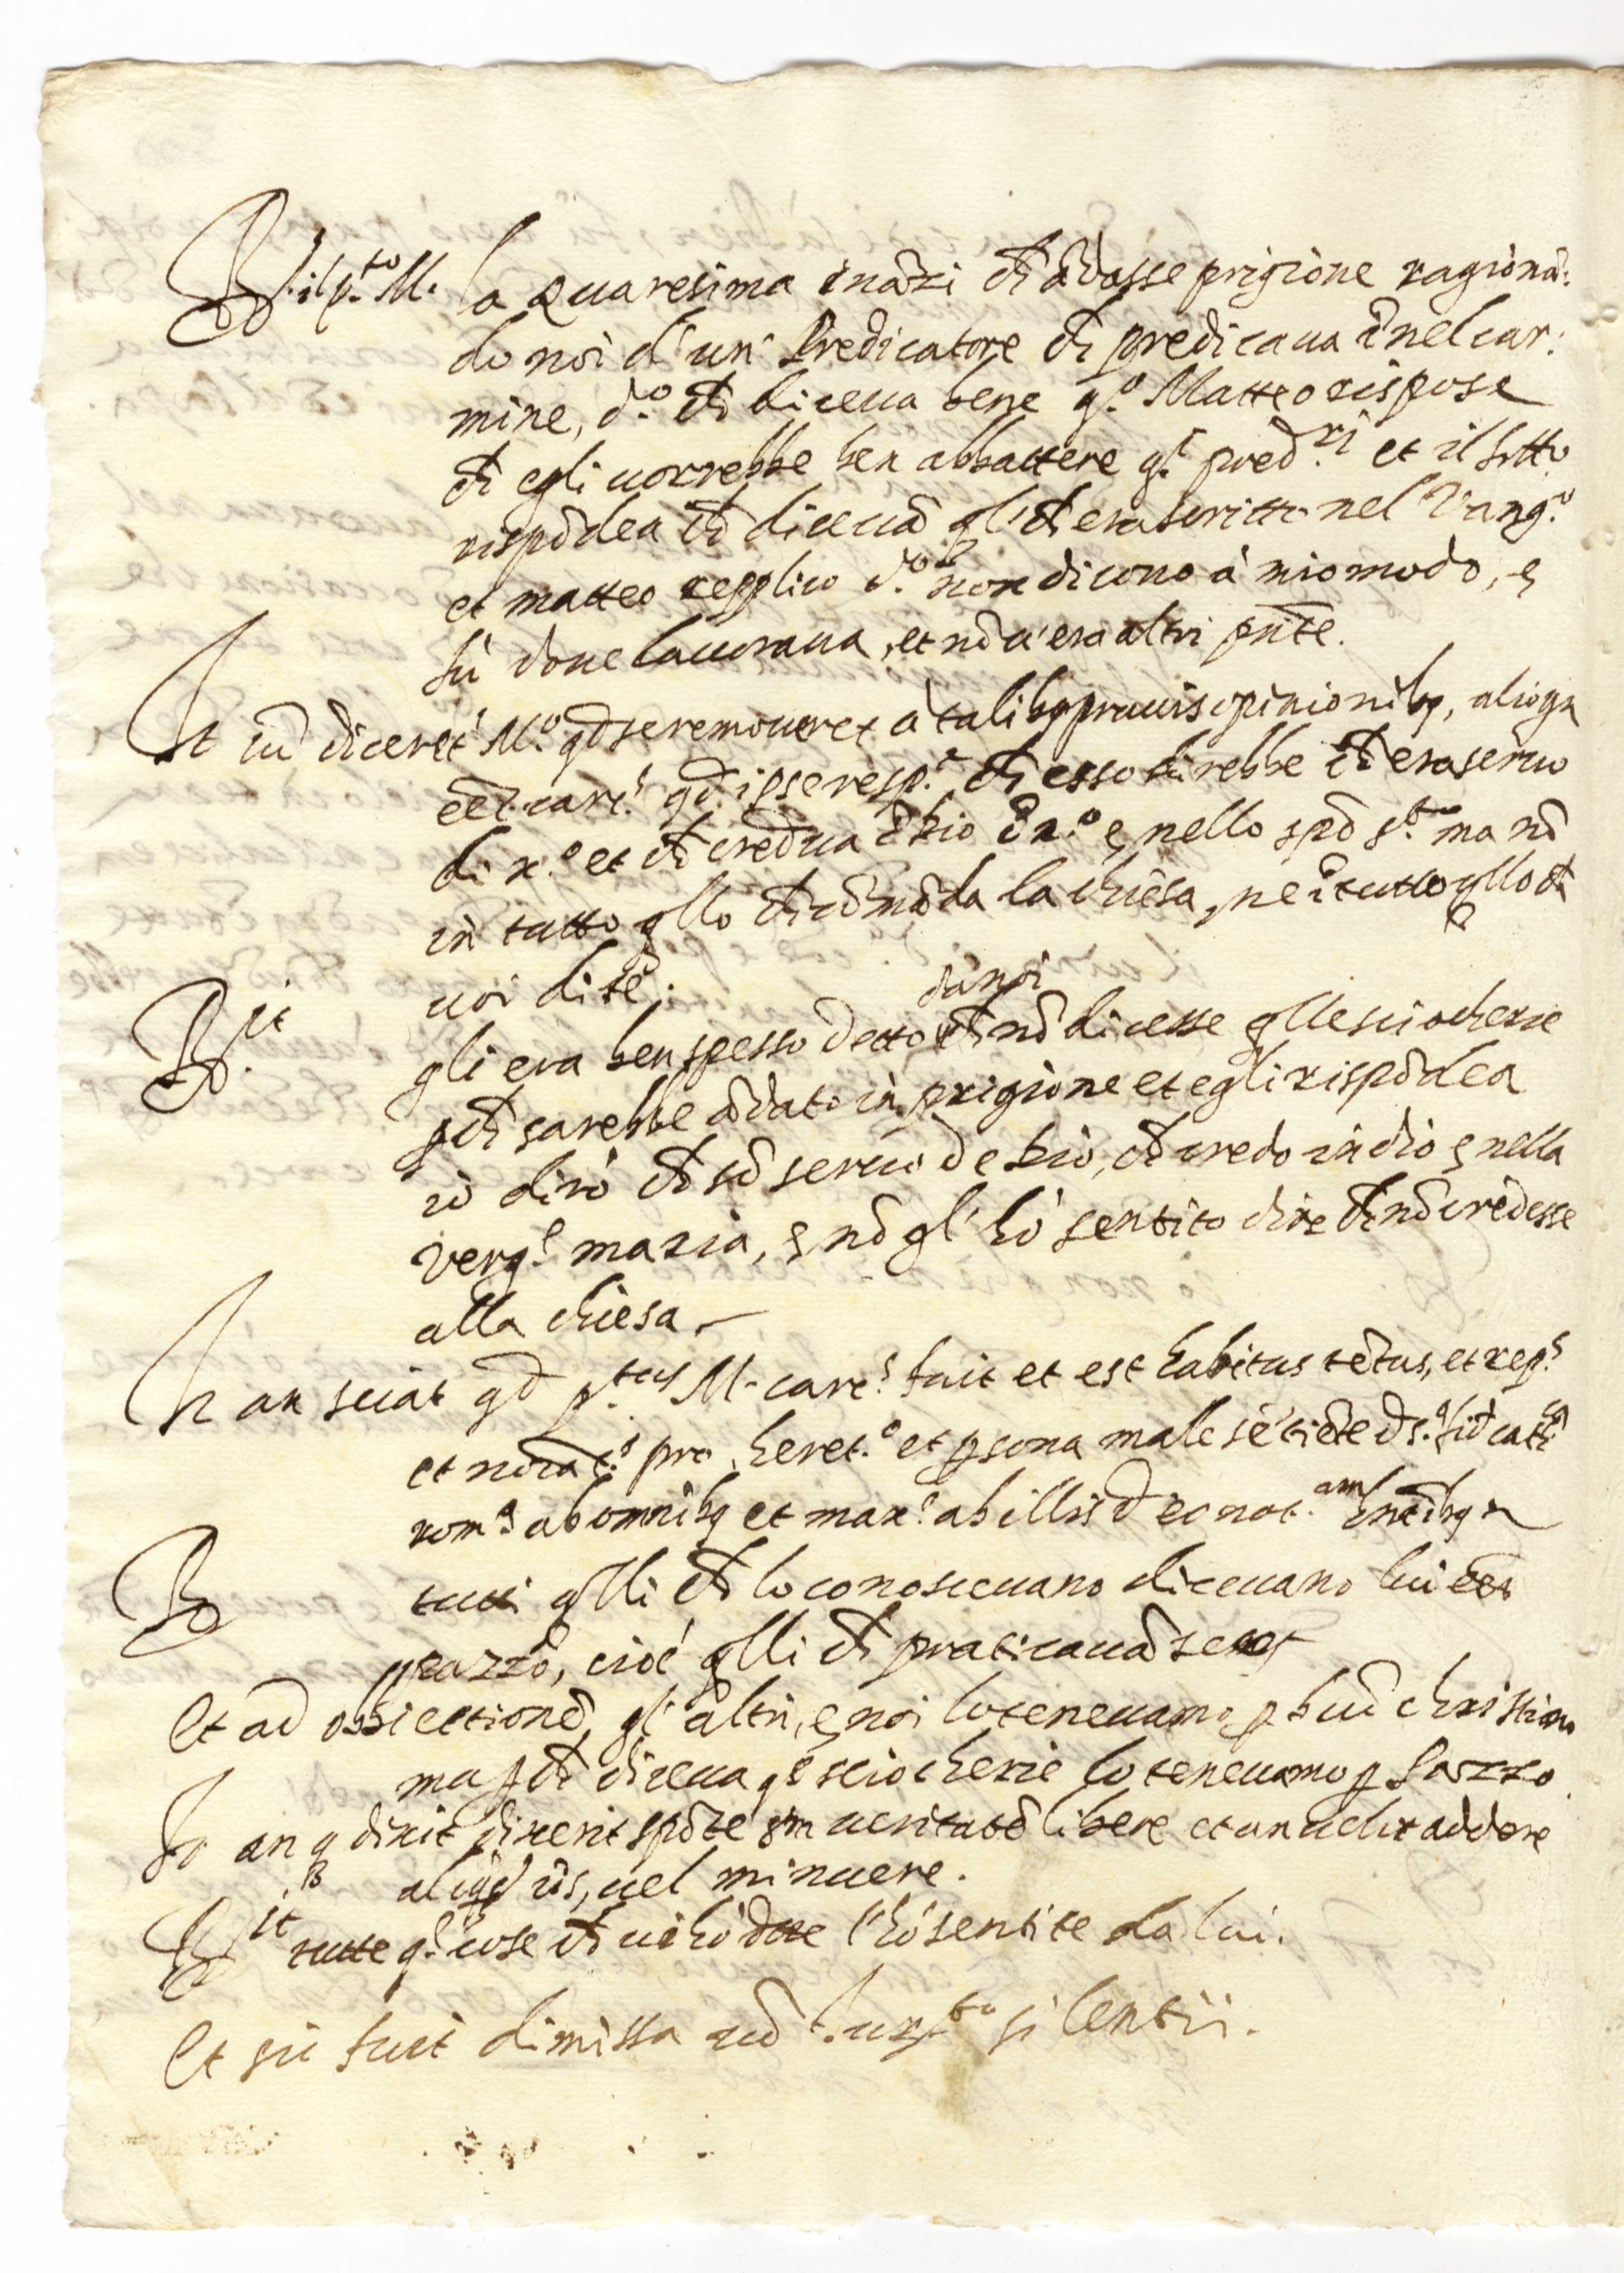 R. il p.to M. la Quaresima inãzi ch ãdasse prigione ragionã:
do noi d'un Predicatore ch predicaua nel car:
mine, d.o ch diceua bene q.o Matteo rispose
ch egli uorrebbe ben abbattere q.i pred.ri et il
rispõdea ch diceuã ql ch era scritto nel Vang.o
et matteo replico d.o non dicono à mio modo, e
fù doue lauoraua, et nõ u'era altri pñte.
It cũ diceret M.o qd se remoueret à talibq prauis opinionibq, aliogn
eẽt carc.s qd ipse resp.t ch esso direbbe ch era seruo
di x.o et ch credeua ĩ Dio e nello spõ s.to ma nõ
in tutto qllo ch cõmãda la chiesa, ne ĩ tutto qllo ch
uoi dite.
R.it gli era ben spesso detto da noi ch nõ dicesse qlle sciocherie
p ch sarebbe ãdato in prigione et egli rispõdea
io dirò ch sõ seruo de Dio, ch credo in dio e nella
Verg.e maria, e nõ gl'hò sentito dire ch nõ credesse
alla chiesa
It an sciat qd p.tus M. carc.s fuit et est habitus tẽtus, et rep.s
et pro heret.o et psona male sẽtiẽte d s.a fid cath.ca
rom.a ab omnibq et max.e ab illis d eo not.am hñtibq
R tutti qlli ch lo conosceuano diceuano lui
pazzo, cioè qlli ch praticauã
Et ad obiectionẽ, gl'altri, e noi lo teneuamo p buõ christiano
ma p ch diceua q.e sciocherie lo teneuamo p pazzo
It an q dixit dixerit spõte sm ueritatẽ libere et an uelit addere
aliqd is, uel minuere.
R.it tutte q.e cose ch ui hò dette l'hò sentite da lui.
Et sic fuit dimissa cũ iur.to silentii.